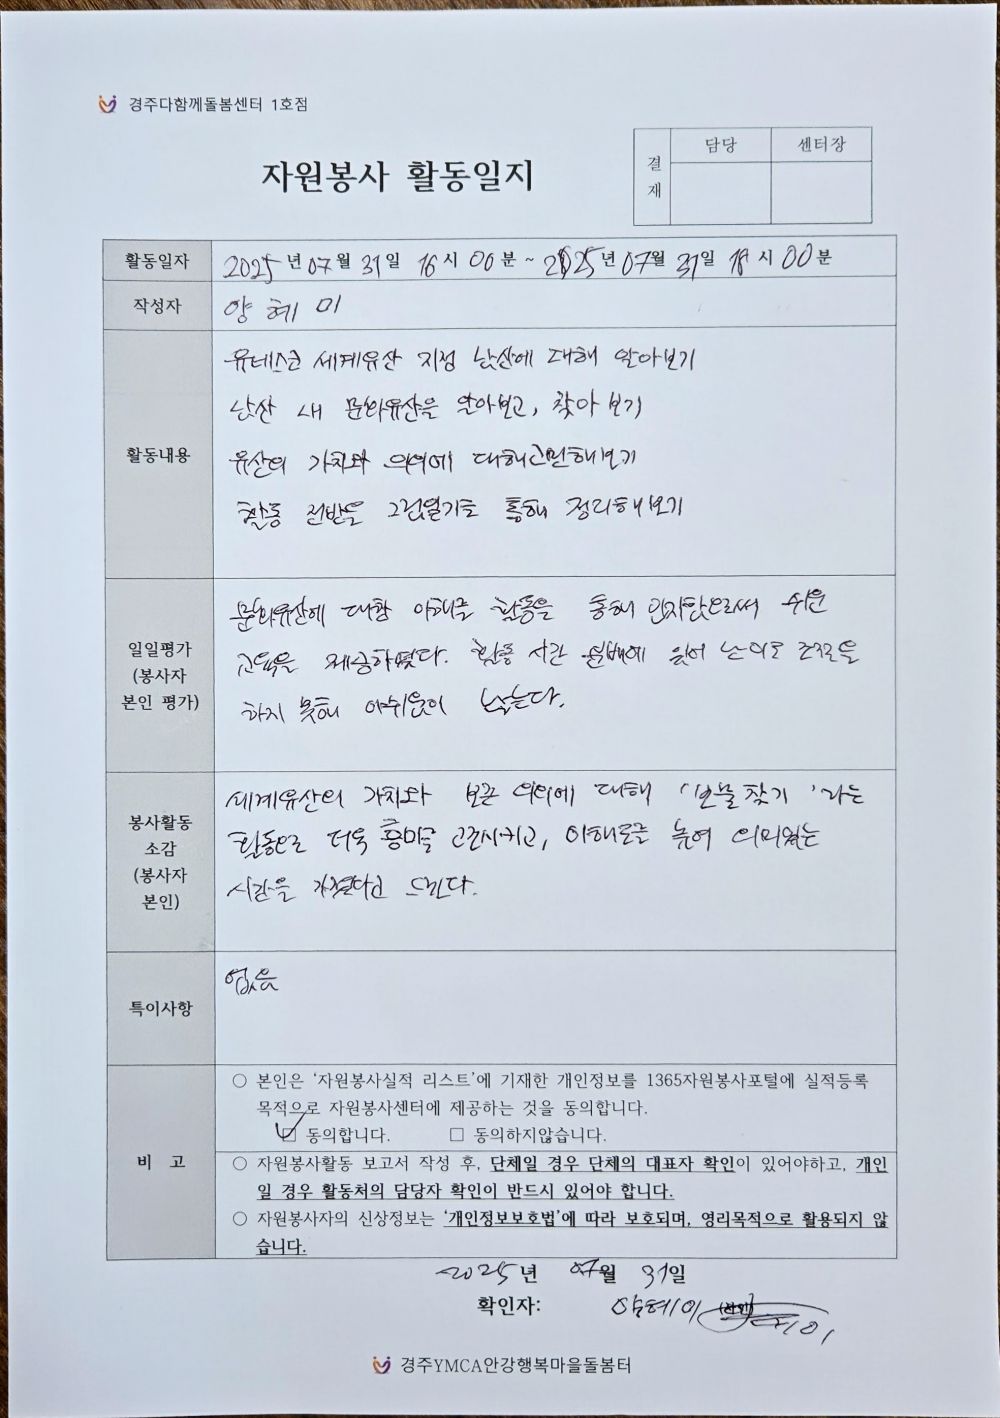 경주다함께돌봄센터 1호점
자원봉사 활동일지
결재
담당
센터장
활동일자
2025년 07월 31일 16시 00분 ~ 2025년 07월 31일 18시 00분
작성자
양혜미
활동내용
유네스코 세계유산 지정 남산에 대해 알아보기
남산 내 문화유산을 알아보고, 찾아보기
유산의 가치와 의의에 대해 고민해보기
활동 전반을 그림일기로 통해 정리해보기
일일평가
(봉사자
본인 평가)
문화유산에 대한 이해를 활동을 통해 인지함으로써 쉬운
교육을 제공하였다. 활동 시간 분배에 있어 난이도 조절을
하지 못해 아쉬움이 남는다.
봉사활동
소감
(봉사자
본인)
세계유산의 가치와 보존 의의에 대해 '보물찾기'라는
활동으로 더욱 흥미를 고조시키고, 이해도를 높여 의미있는
시간을 가졌다고 느낀다.
특이사항
없음
비 고
○ 본인은 '자원봉사실적 리스트'에 기재한 개인정보를 1365자원봉사포털에 실적등록
목적으로 자원봉사센터에 제공하는 것을 동의합니다.
☑ 동의합니다. □ 동의하지않습니다.
○ 자원봉사활동 보고서 작성 후, 단체일 경우 단체의 대표자 확인이 있어야하고, 개인
일 경우 활동처의 담당자 확인이 반드시 있어야 합니다.
○ 자원봉사자의 신상정보는 '개인정보보호법'에 따라 보호되며, 영리목적으로 활용되지 않
습니다.
2025년 07월 31일
확인자:
경주YMCA안강행복마을돌봄터